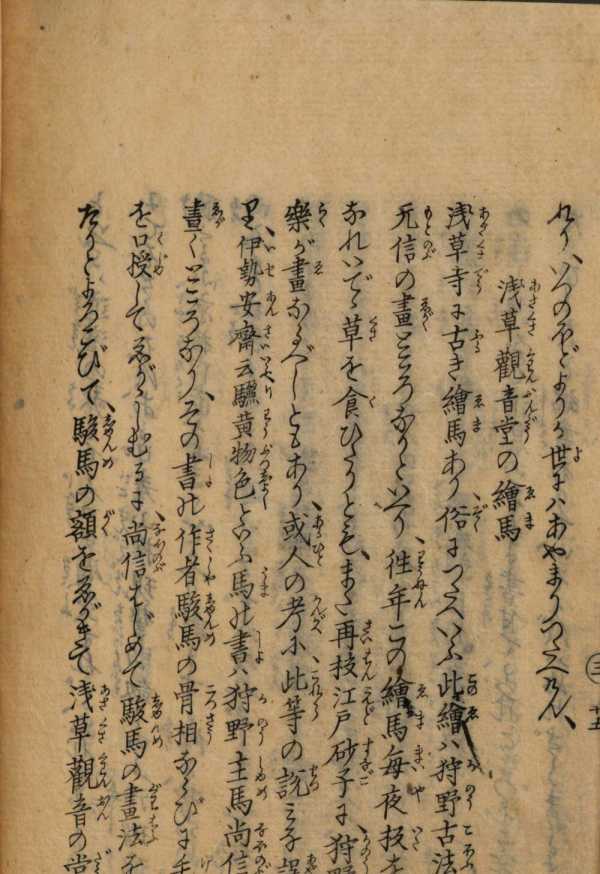 れり、いつのほどよりか世にハあやまりつたへけん、
浅草觀音堂の繪馬
浅草寺に古き繪馬あり、俗につたへいふ此繪ハ狩野古法
元信の畫ところなりといへり、往年この繪馬毎夜抜
なれいでゝ草を食ひたりとも、また再校江戸砂子に、狩野
樂が畫なるべしともあり、或人の考に、此等の説みな誤
里、伊勢安齋云驪黄物色といふ馬の書ハ狩野主馬尚信
畫くところなり、その書の作者駿馬の骨相ならびに
を口授してゑがゝしむるに、尚信はじめて駿馬の畫法を
たりとよろこびて、駿馬の額をゑがきて浅草觀音の堂